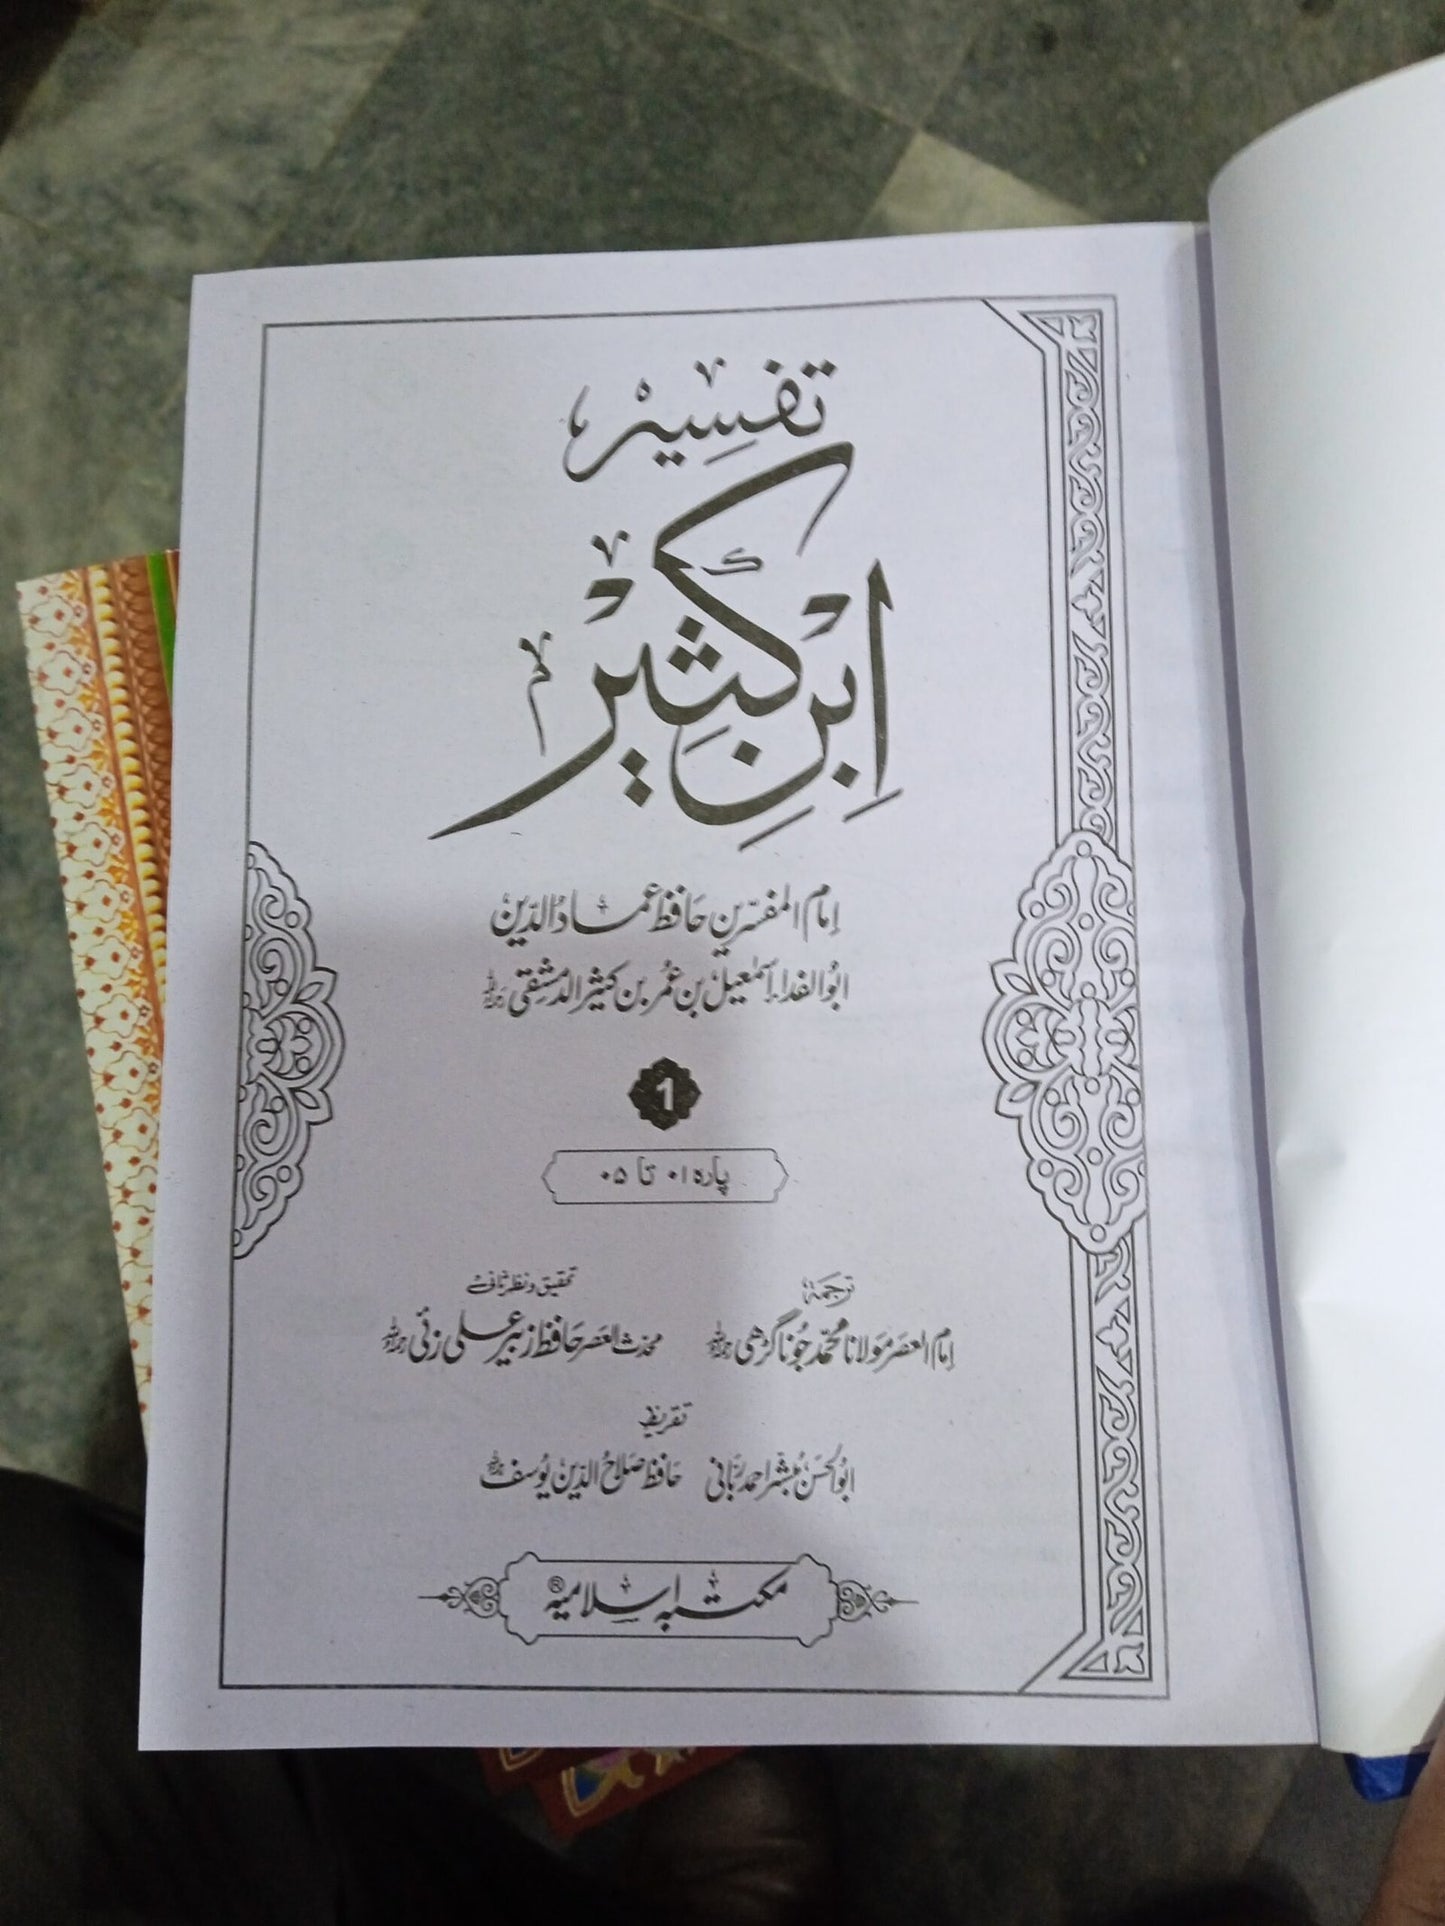 تفسیر
ابنِ کثیر
امام المفسرین حافظ عماد الدین
ابو الفداء اسمٰعیل بن عمر بن کثیر الدمشقی رحمہ اللہ
1
پارہ ۰۱ تا ۰۵
ترجمہ
امام العصر مولانا محمد جوناگڑھی رحمہ اللہ
تحقیق و نظرثانی
محدث العصر حافظ زبیر علی زئی رحمہ اللہ
تقریظ
ابو الحسن مبشر احمد ربانی حافظ صلاح الدین یوسف رحمہ اللہ
مکتبہ اسلامیہ®